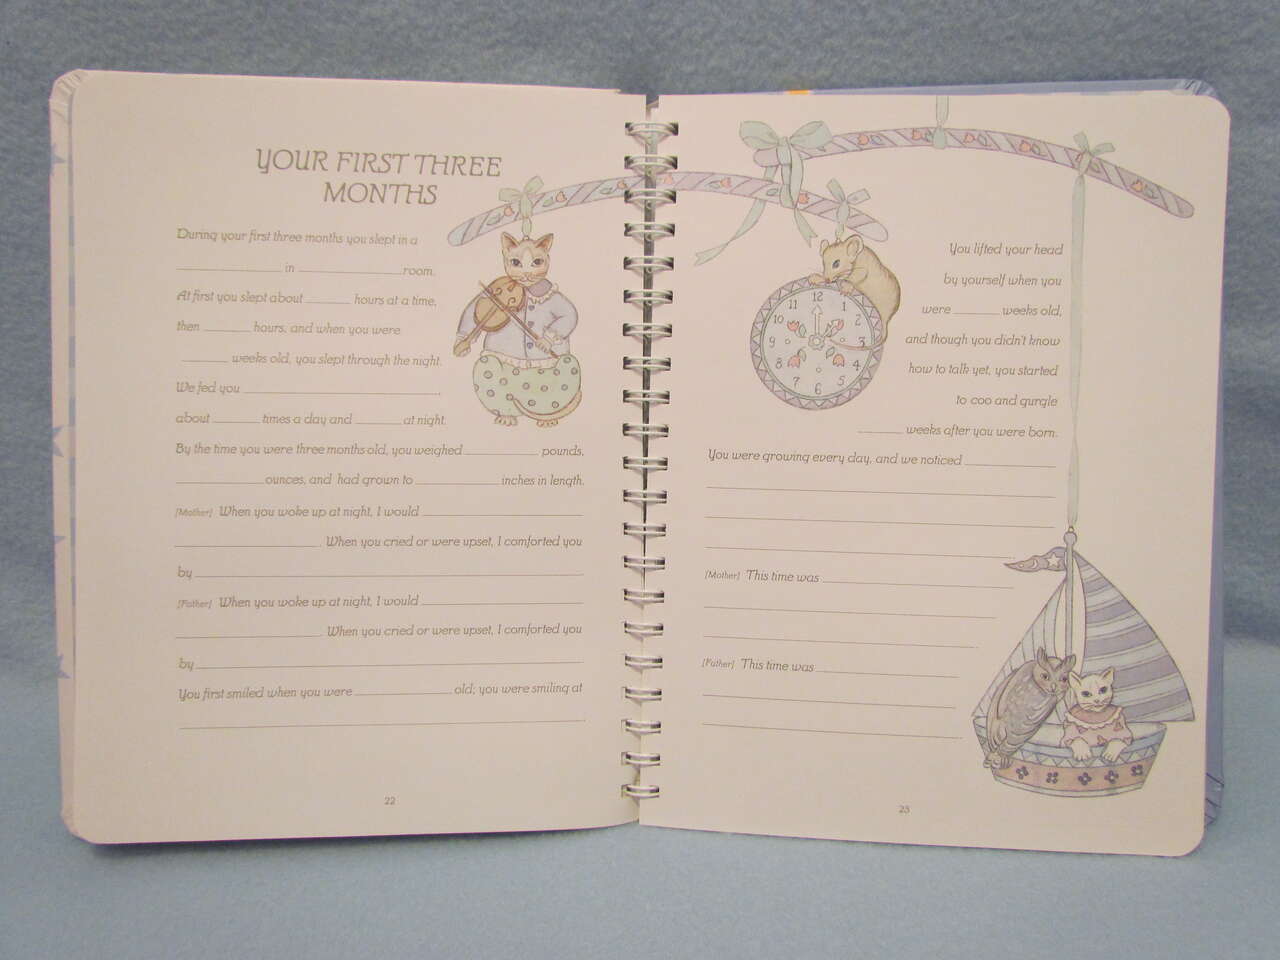 YOUR FIRST THREE
MONTHS
During your first three months you slept in a
____________ in ____________ room.
At first you slept about ______ hours at a time,
then ______ hours, and when you were
______ weeks old, you slept through the night.
We fed you ______________________,
about ______ times a day and ______ at night.
By the time you were three months old, you weighed ________ pounds,
__________ ounces, and had grown to __________ inches in length.
[Mother] When you woke up at night, I would __________________
________________. When you cried or were upset, I comforted you
by ____________________________________________
[Father] When you woke up at night, I would __________________
________________. When you cried or were upset, I comforted you
by ____________________________________________
You first smiled when you were ____________ old; you were smiling at
______________________________________________.
22
12
11 1
10 2
9 3
8 4
7 5
6
You lifted your head
by yourself when you
were ______ weeks old,
and though you didn't know
how to talk yet, you started
to coo and gurgle
______ weeks after you were born.
You were growing every day, and we noticed ____________
[Mother] This time was ______________________
[Father] This time was __________________
23